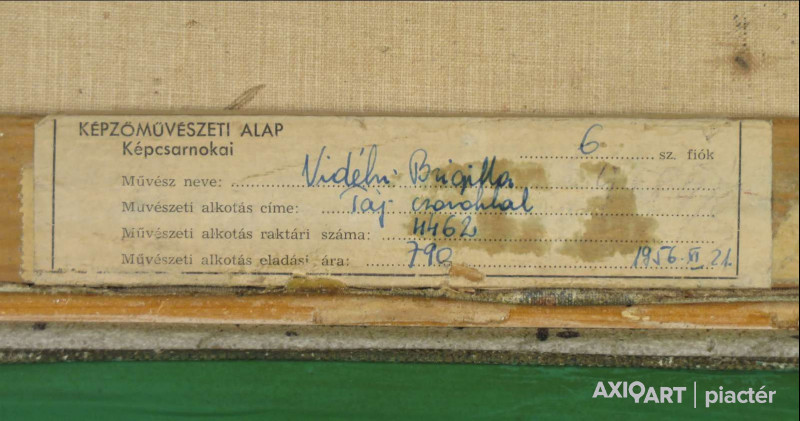 KÉPZŐMŰVÉSZETI ALAP
Képcsarnokai
6 sz. fiók
Művész neve: Vidéky Brigitta
Művészeti alkotás címe: Táj csónakkal
Művészeti alkotás raktári száma: 4462
Művészeti alkotás eladási ára: 790 1956 XI 21.
AXIOART | piactér